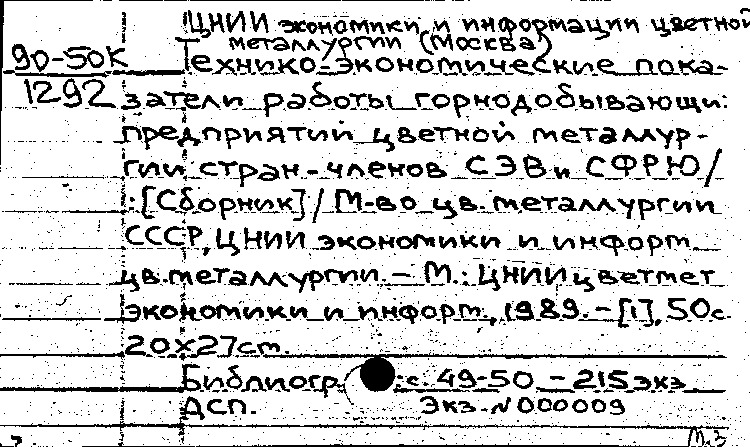 ЦНИИ экономики и информации цветной
металлургии (Москва)
90-50К
1292
Технико-экономические пока-
затели работы горнодобывающи:
предприятий цветной металлур-
гии стран-членов СЭВ и СФРЮ/
:[Сборник]/ М-во цв. металлургии
СССР, ЦНИИ экономики и информ.
цв. металлургии. – М.: ЦНИИцветмет
экономики и информ., 1989. – [1], 50с.
20х27см.
Библиогр.: с. 49-50 – 215 экз
ДСП. Экз. N 000009
М.З